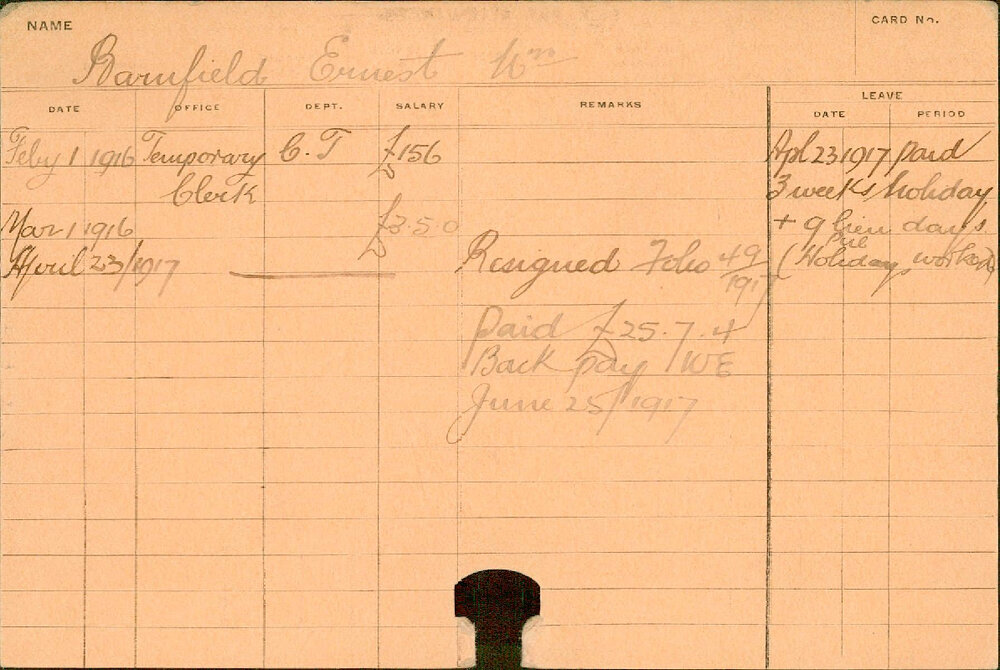 NAME
CARD No.
Barnfield Ernest Wm
DATE OFFICE DEPT. SALARY REMARKS LEAVE
DATE PERIOD
Feby 1 1916 Temporary C.T £156
Clerk
Mar 1 1916 £3.5.0
April 23/1917 Resigned Folio 49/1917
Paid £25.7.4
Back pay WE
June 25/1917
Apl 23 1917 paid
3 weeks holiday
+ 9 lieu days
Pub
(Holidays worked)